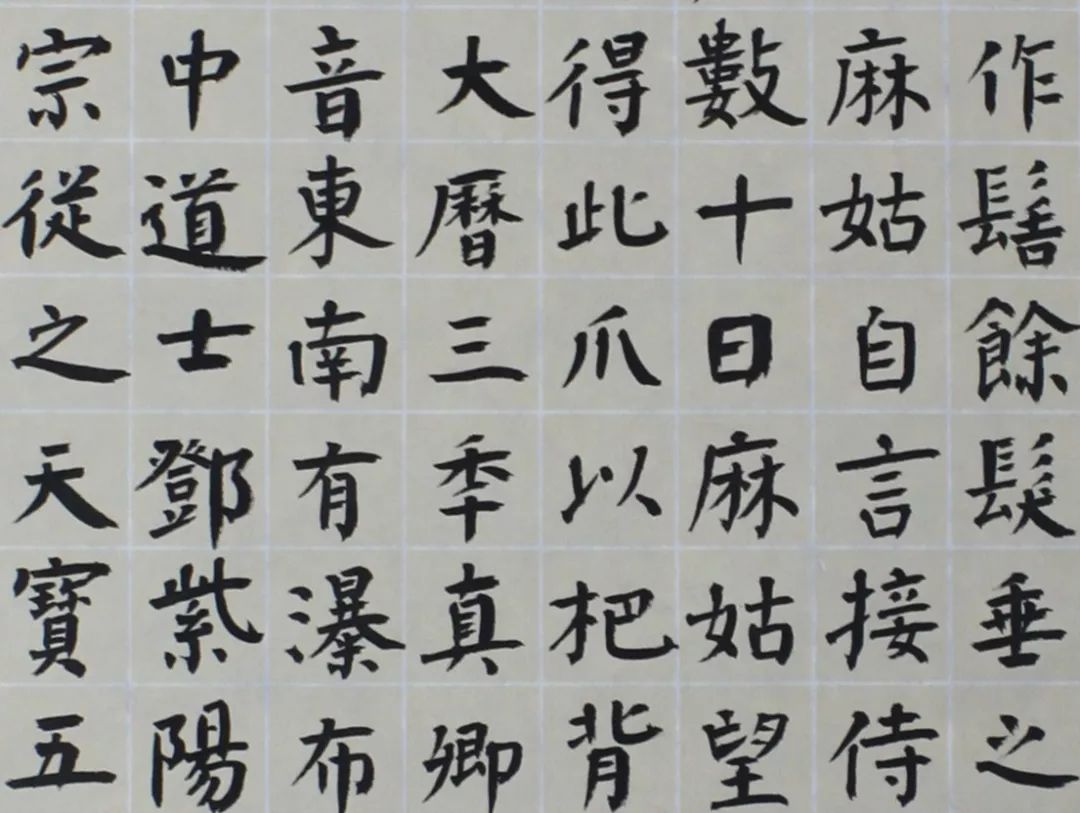 作髻餘髮垂之
麻姑自言接侍
數十日麻姑望
得此爪以杷背
大曆三秊真卿
音東南有瀑布
中道士鄧紫陽
宗從之天寶五